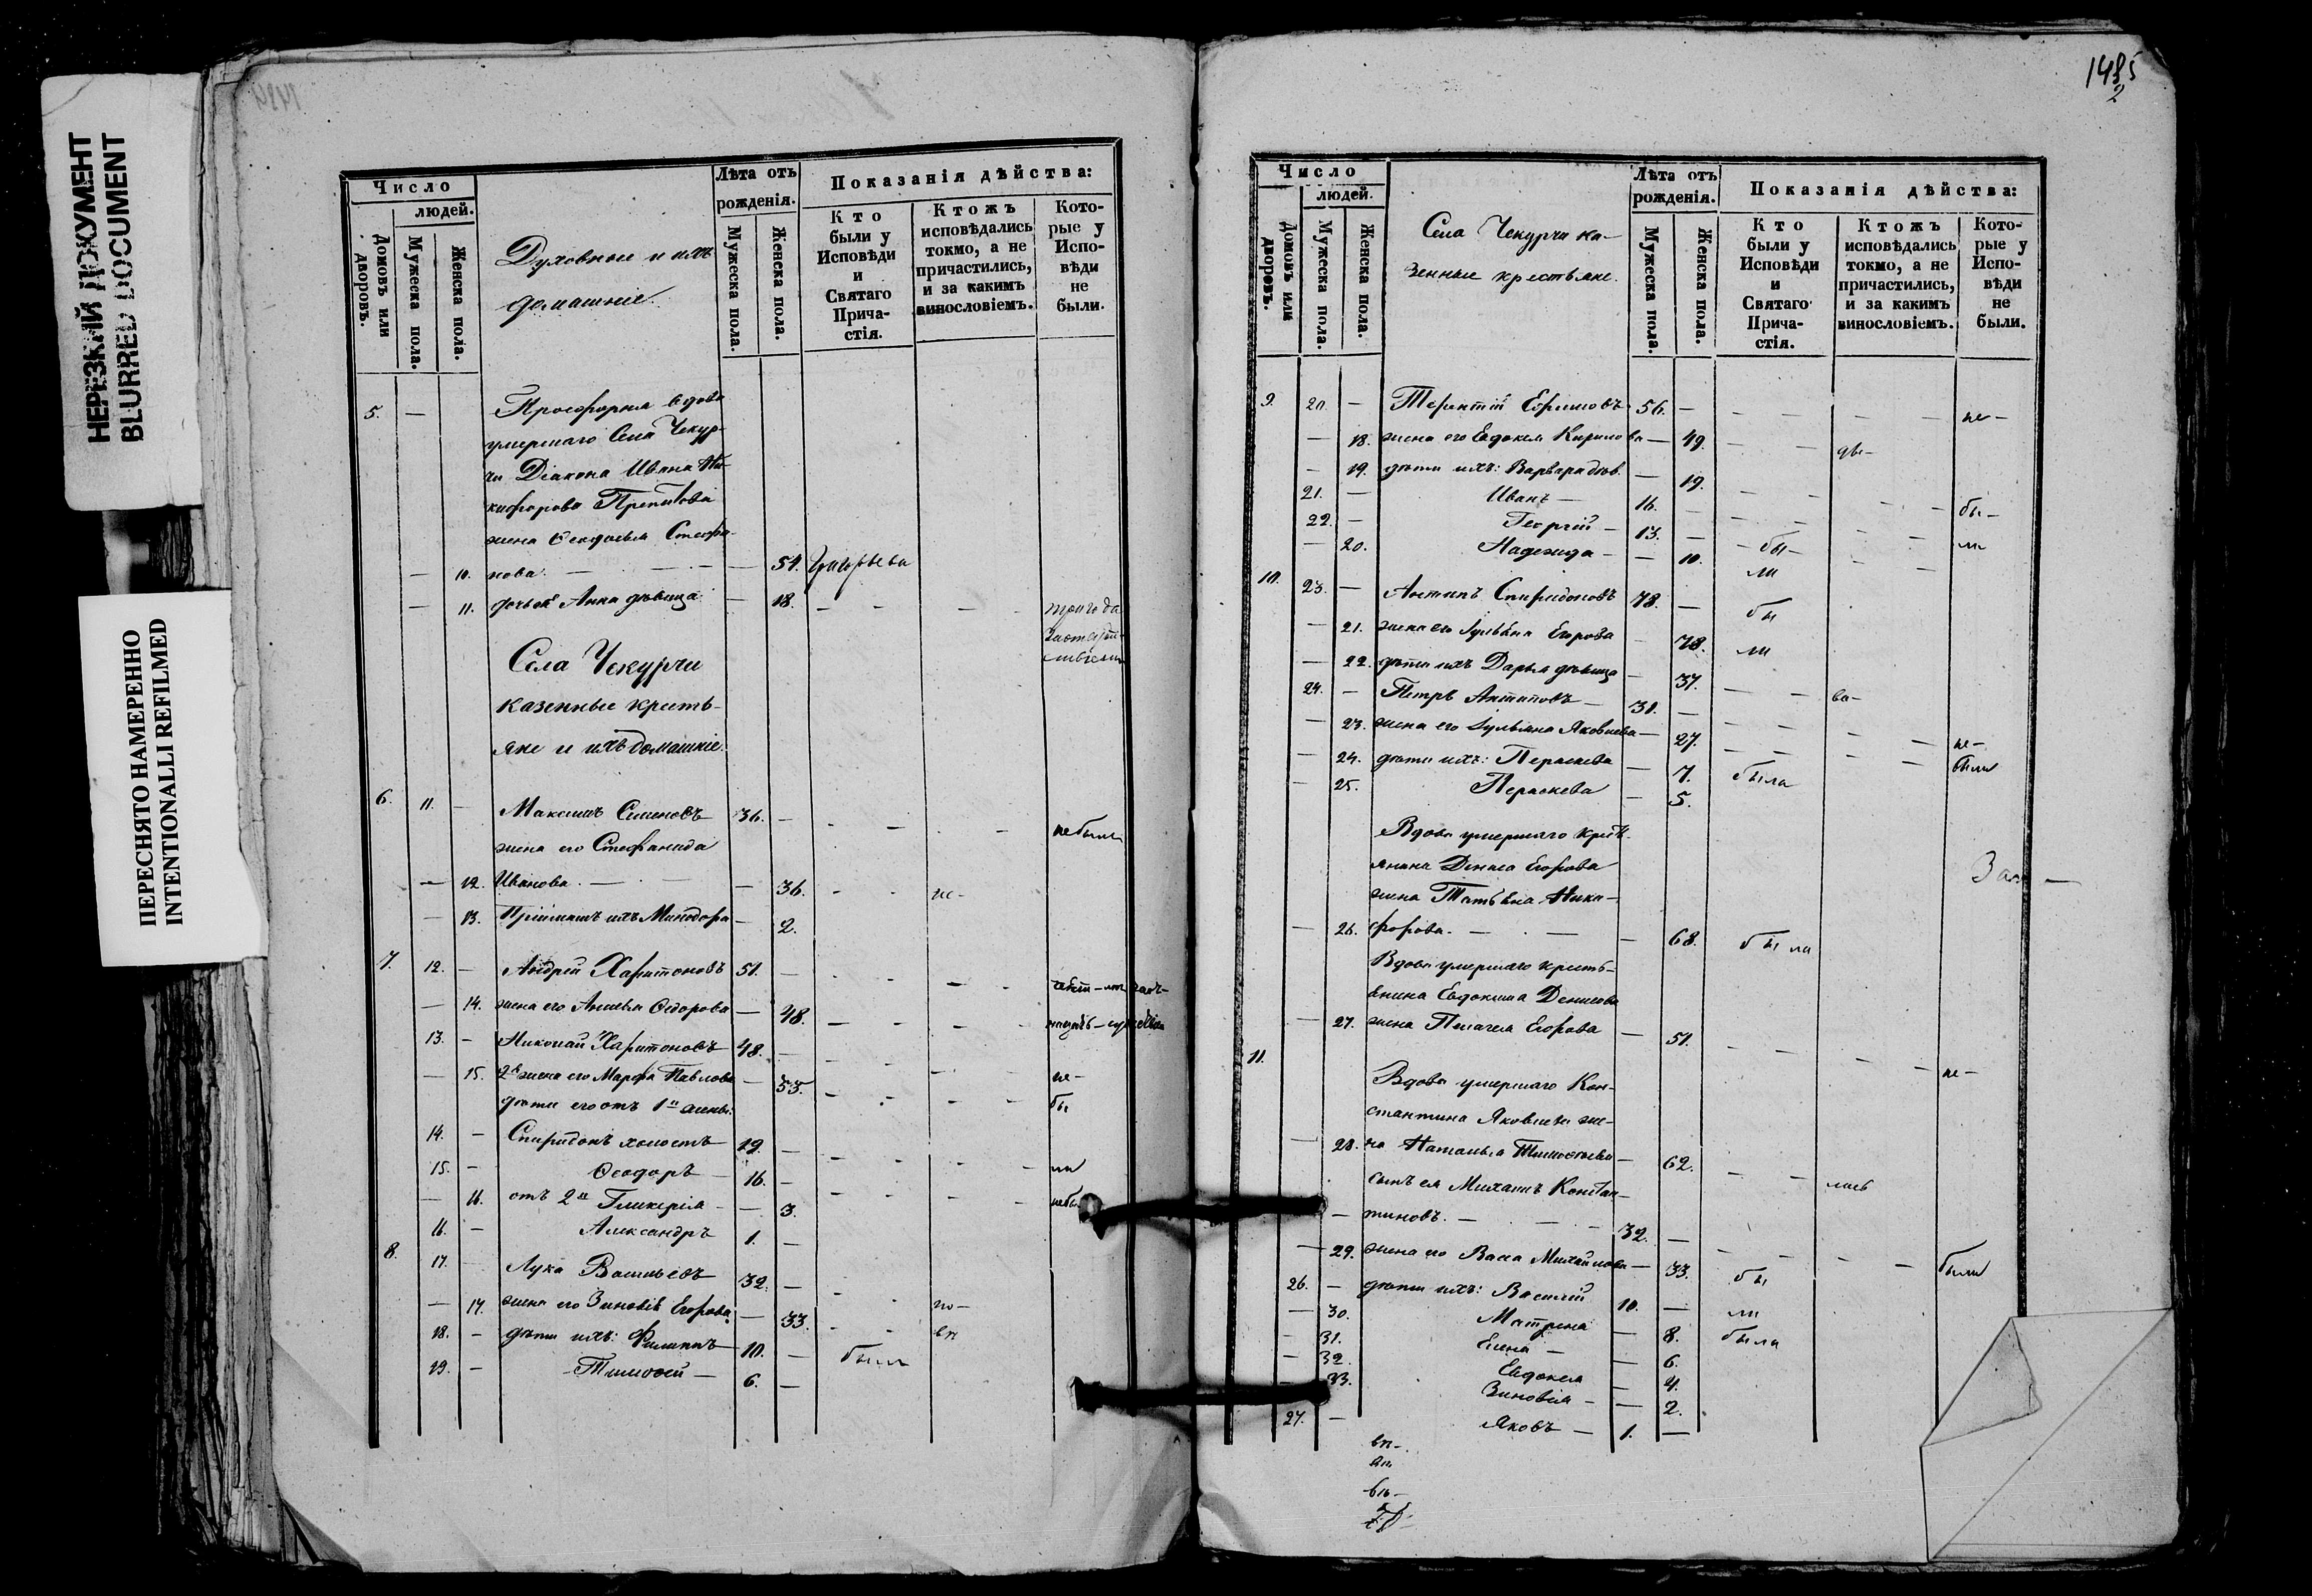 НЕРЕЗКИЙ ДОКУМЕНТ
BLURRED DOCUMENT
ПЕРЕСНЯТО НАМЕРЕННО
INTENTIONALLI REFILMED
Число
людей.
Домовъ или дворовъ.
Мужеска пола.
Женска пола.
Духовные и ихъ
домашніе.
Лѣта отъ
рожденія.
Мужеска пола.
Женска пола.
Показанія дѣйства:
Кто
были у
Исповѣди
и
Святаго
Прича-
стія.
Ктожъ
исповѣдались
токмо, а не
причастились,
и за какимъ
винословіемъ.
Кото-
рые у
Испо-
вѣди
не
были.
5. — Просфорня вдова
умершаго Села Чекур-
чи Діакона Ивана Ни-
кифорова
жена Стефа-
— 10. нова. — — 51.
— 11. дочь ея Анна дѣвица — 18. — - — -
Села Чекурчи
казенные кресть-
яне и ихъ домашніе.
6. 11. — Максимъ Семеновъ 36. — - — - не были
жена его Стефанида
— 12. Иванова. — — 36. - - не-
— 13. Пріймышъ ихъ Минодора — 2.
7. 12. — Андрей Харитоновъ 51. —
— 14. жена его Ѳедорова — 48. — - — -
13. — Николай Харитоновъ 48. —
— 15. 2я жена его Марфа Павлова — 53. — не-
дѣти его отъ 1й жены: бы
14. — Спиридонъ холостъ 19. —
15. — Ѳеодоръ — 16. — ли
— 16. отъ 2й Гликерія — — 3.
16. — Александръ 1. —
8. 17. Лука Васильевъ 32. —
— 17. жена его Зиновія Егорова — 33. - -
18. — дѣти ихъ: Филиппъ — 10. — были
19. — Тимоѳей — 6. —
1485
2
Число
людей.
Домовъ или дворовъ.
Мужеска пола.
Женска пола.
Села Чекурчи ка-
зенные крестьяне.
Лѣта отъ
рожденія.
Мужеска пола.
Женска пола.
Показанія дѣйства:
Кто
были у
Исповѣди
и
Святаго
Прича-
стія.
Ктожъ
исповѣдались
токмо, а не
причастились,
и за какимъ
винословіемъ.
Кото-
рые у
Испо-
вѣди
не
были.
9. 20. — Терентій Ефимовъ 56. — - — - не-
— 18. жена его Евдокія Кирилова — 49. — -
— 19. дѣти ихъ: Варвара дѣв. — 19.
21. — Иванъ — 16. — бы-
22. — Георгій — 13. — - бы - ли
— 20. Надежда — — 10. ли
10. 23. — Антипъ Спиридоновъ 78. — бы
— 21. жена его Іуліана Егорова — 78. ли
— 22. дѣти ихъ Дарья дѣвица — 37. — - ва-
24. — Петръ Антиповъ — 31. —
— 23. жена его Іульяна Яковлева — 27. не-
— 24. дѣти ихъ: Параскева — 7. была были
— 25. Параскева — 5.
Вдова умершаго крест-
янина Дениса Егорова
жена Татьяна Ники-
— 26. форова. — — 68. была
Вдова умершаго кресть-
янина Евдокима Денисова
— 27. жена Пелагея Егорова — 51. не-
11. Вдова умершаго Кон-
стантина Яковлева же-
— 28. на Наталья Тимоѳеева — 62.
сынъ ея Михаилъ Констан-
— тиновъ. — 32. —
— 29. жена его Васса Михайлова — 33. бы были
26. — дѣти ихъ: Василій 10. — ли
— 30. Матрена — 8. была
— 31. Елена — — 6.
— 32. Евдокея — 4.
— 33. Зиновія — — 2.
27. — Яковъ — 1. —